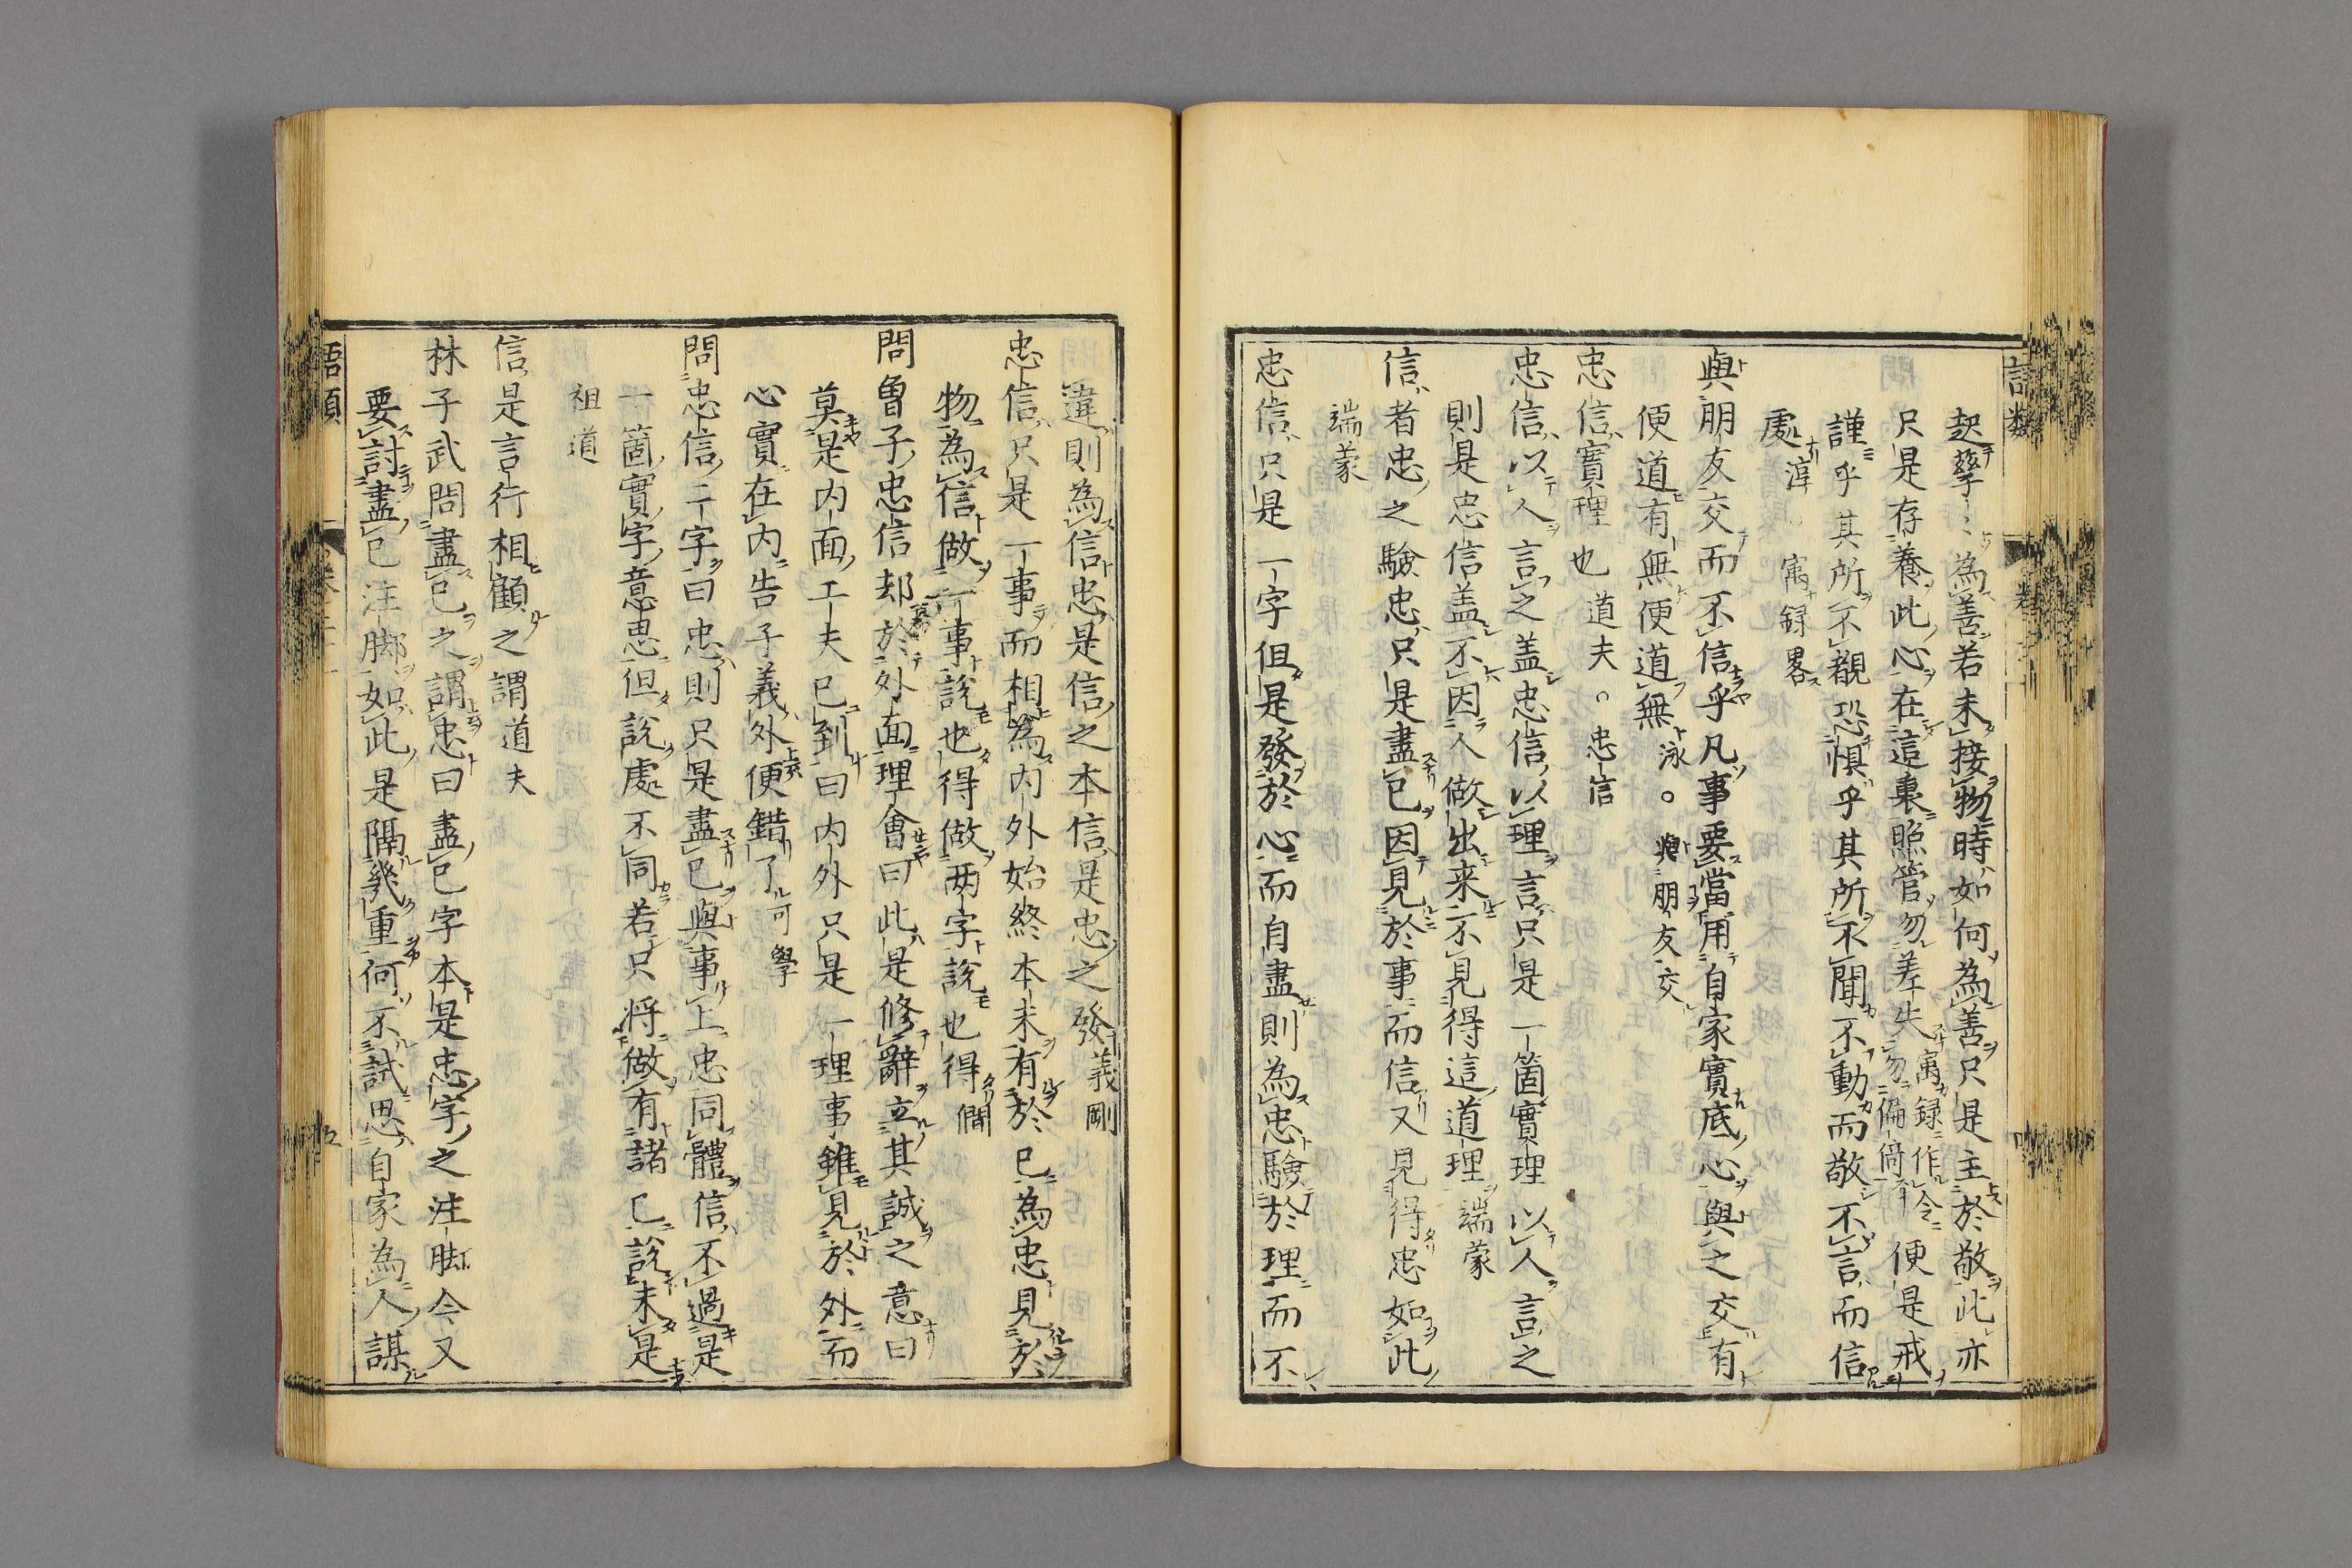 起孳〻為善若未接物時如何為善只是主於敬此亦
只是存養此心在這裏照管勿差失勿偏倚㝢録作令便是戒
謹乎其所不覩恐惧乎其所不聞不動而敬不言而信
處淳。㝢録畧
與朋友交而不信乎凡事要當用自家實底心與之交有
便道有無便道無泳。與朋友交
忠信實理也道夫。忠信
忠信以人言之盖忠信以理言只是一箇實理以人言之
則是忠信盖不因人做出来不見得這道理端蒙
信者忠之驗忠只是盡己因見於事而信又見得忠如此
端蒙
忠信只是一字但是發於心而自盡則為忠驗於理而不
違則為信忠是信之本信是忠之發義剛
忠信只是一事而相為内外始終本末有於己為忠見於
物為信做一事説也得做两字説也得僩
問曽子忠信却於外面理會曰此是修辭立其誠之意曰
莫是内面工夫已到曰内外只是一理事雖見於外而
心實在内告子義外便錯了可學
問忠信二字曰忠則只是盡己與事上忠同體信不過是
一箇實字意思但説處不同若只将做有諸己説未是
祖道
信是言行相顧之謂道夫
林子武問盡己之謂忠曰盡己字本是忠字之注脚今又
要討盡己注脚如此是隔幾重何不試思自家為人謀